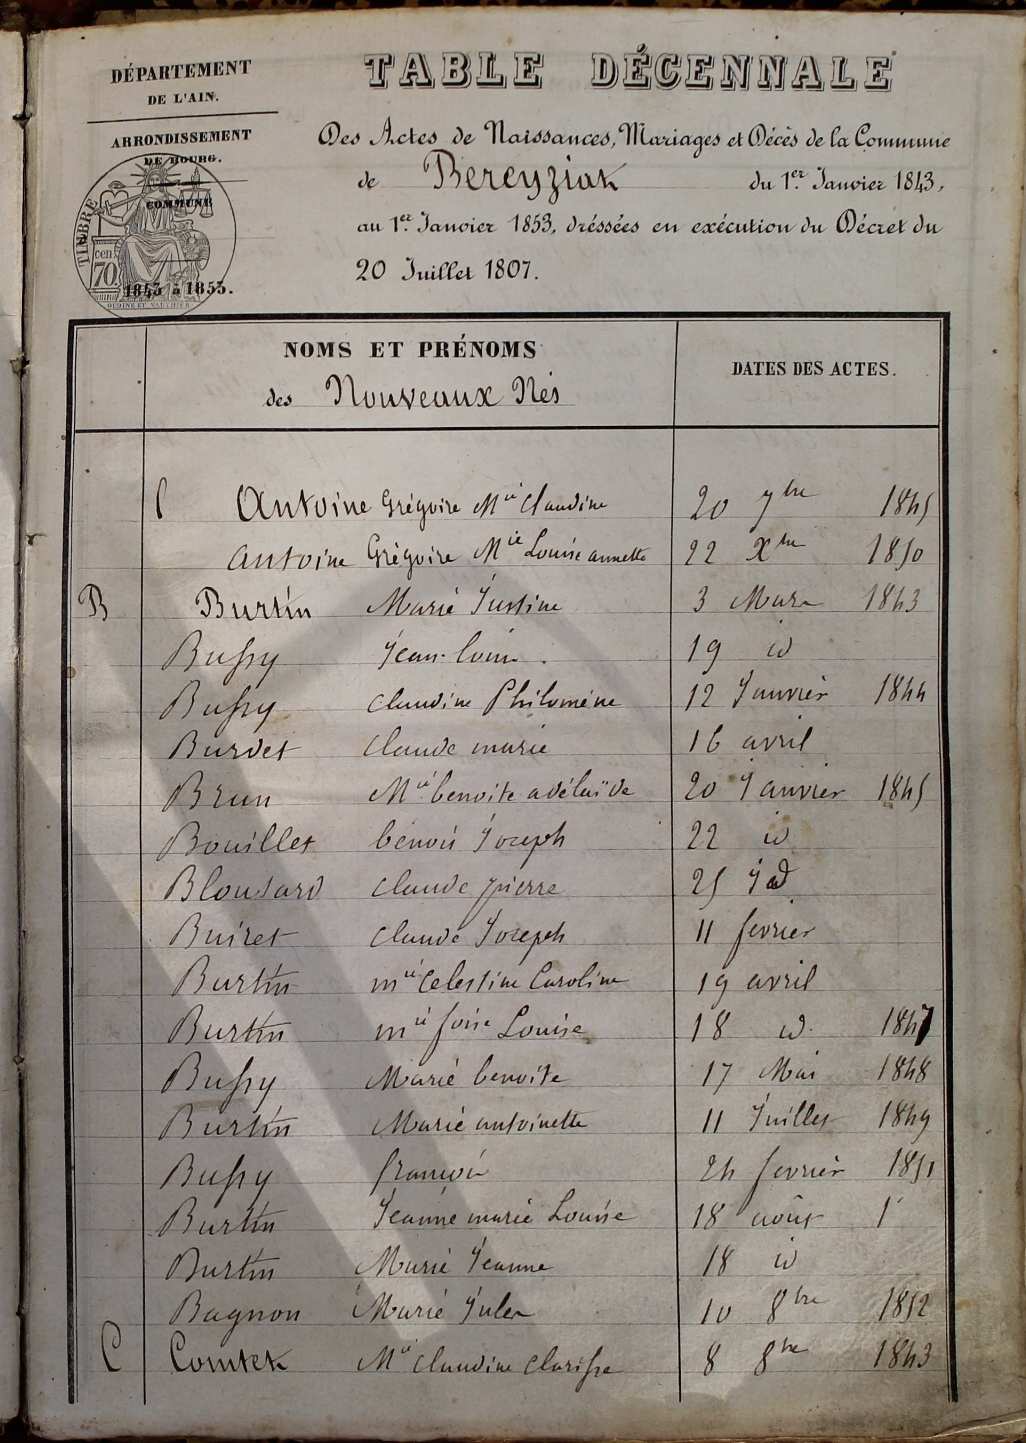 DÉPARTEMENT
DE L'AIN.
ARRONDISSEMENT
DE BOURG.
COMMUNE
TIMBRE
cen.
70
1843 à 1853.
TABLE DÉCENNALE
Des Actes de Naissances, Mariages et Décès de la Commune
de Bereyziat du 1er. Janvier 1843,
au 1er. Janvier 1853, dréssées en exécution du Décret du
20 Juillet 1807.
NOMS ET PRÉNOMS
des Nouveaux Nés
DATES DES ACTES.
Antoine Grégoire Mie Claudine 20 7bre 1845
antoine Grégoire Mie Louise annette 22 Xbre 1850
B Burtin Marie Justine 3 Mars 1843
Bussy Jean-louis 19 id
Bussy claudine Philomène 12 Janvier 1844
Burdet claude marie 16 avril
Brun Mie benoite adélaïde 20 Janvier 1845
Bouillet benoit Joseph 22 id
Blousard claude pierre 25 id
Buiret claude Joseph 11 fevrier
Burtin mie Celestine Caroline 19 avril
Burtin mie foise Louise 18 id. 1847
Bussy Marie benoite 17 Mai 1848
Burtin Marie antoinette 11 Juillet 1849
Bussy françois 24 fevrier 1851
Burtin Jeanne marie Louise 18 août 1
Burtin Marie Jeanne 18 id
Bagnon Marie Jules 10 8bre 1852
C Comtet Mie claudine clarisse 8 8bre 1843